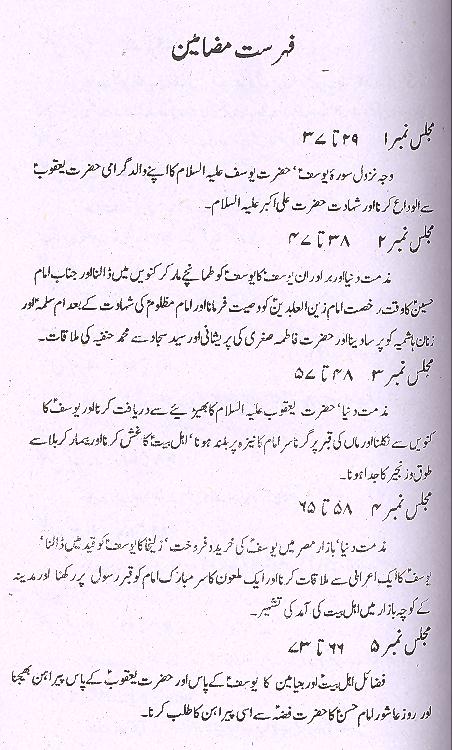 فہرست مضامین
مجلس نمبر ۱ ۲۹ تا ۳۷
وجہ نزول سورۃ یوسفؑ، حضرت یوسف علیہ السلام کا اپنے والد گرامی حضرت یعقوبؑ
سے الوداع کرنا اور شہادت حضرت علی اکبر علیہ السلام۔
مجلس نمبر ۲ ۳۸ تا ۴۷
مذمت دنیا اور برادران یوسفؑ کا یوسفؑ کو طمانچے مار کر کنویں میں ڈالنا اور جناب امام
حسینؑ کا وقت رخصت امام زین العابدینؑ کو وصیت فرمانا اور امام مظلومؑ کی شہادت کے بعد ام سلمہؓ اور
زنان ہاشمیہ کو پرسا دینا اور حضرت فاطمہ صغریٰ کی پریشانی اور سید سجادؑ سے محمد حنفیہ کی ملاقات۔
مجلس نمبر ۳ ۴۸ تا ۵۷
مذمت دنیا، حضرت یعقوب علیہ السلام کا بھیڑیئے سے دریافت کرنا اور یوسفؑ کا
کنویں سے نکلنا اور ماں کی قبر پر گرنا سر امام کا نیزہ پر بلند ہونا، اہل بیتؑ کا غش کرنا اور بیمار کربلا سے
طوق و زنجیر کا جدا ہونا۔
مجلس نمبر ۴ ۵۸ تا ۶۵
مذمت دنیا، بازار مصر میں یوسفؑ کی خرید و فروخت، زلیخا کا یوسفؑ کو قید میں ڈالنا،
یوسفؑ کا ایک اعرابی سے ملاقات کرنا اور ایک ملعون کا سر مبارک امام کو قبر رسولؐ پر رکھنا اور مدینہ
کے کوچہ بازار میں اہل بیتؑ کی آمد کی تشہیر۔
مجلس نمبر ۵ ۶۶ تا ۷۳
فضائل اہل بیتؑ اور بنیامین کا یوسفؑ کے پاس اور حضرت یعقوبؑ کے پاس پیراہن بھیجنا
اور روز عاشور امام حسینؑ کا حضرت فضہ سے اسی پیراہن کا طلب کرنا۔